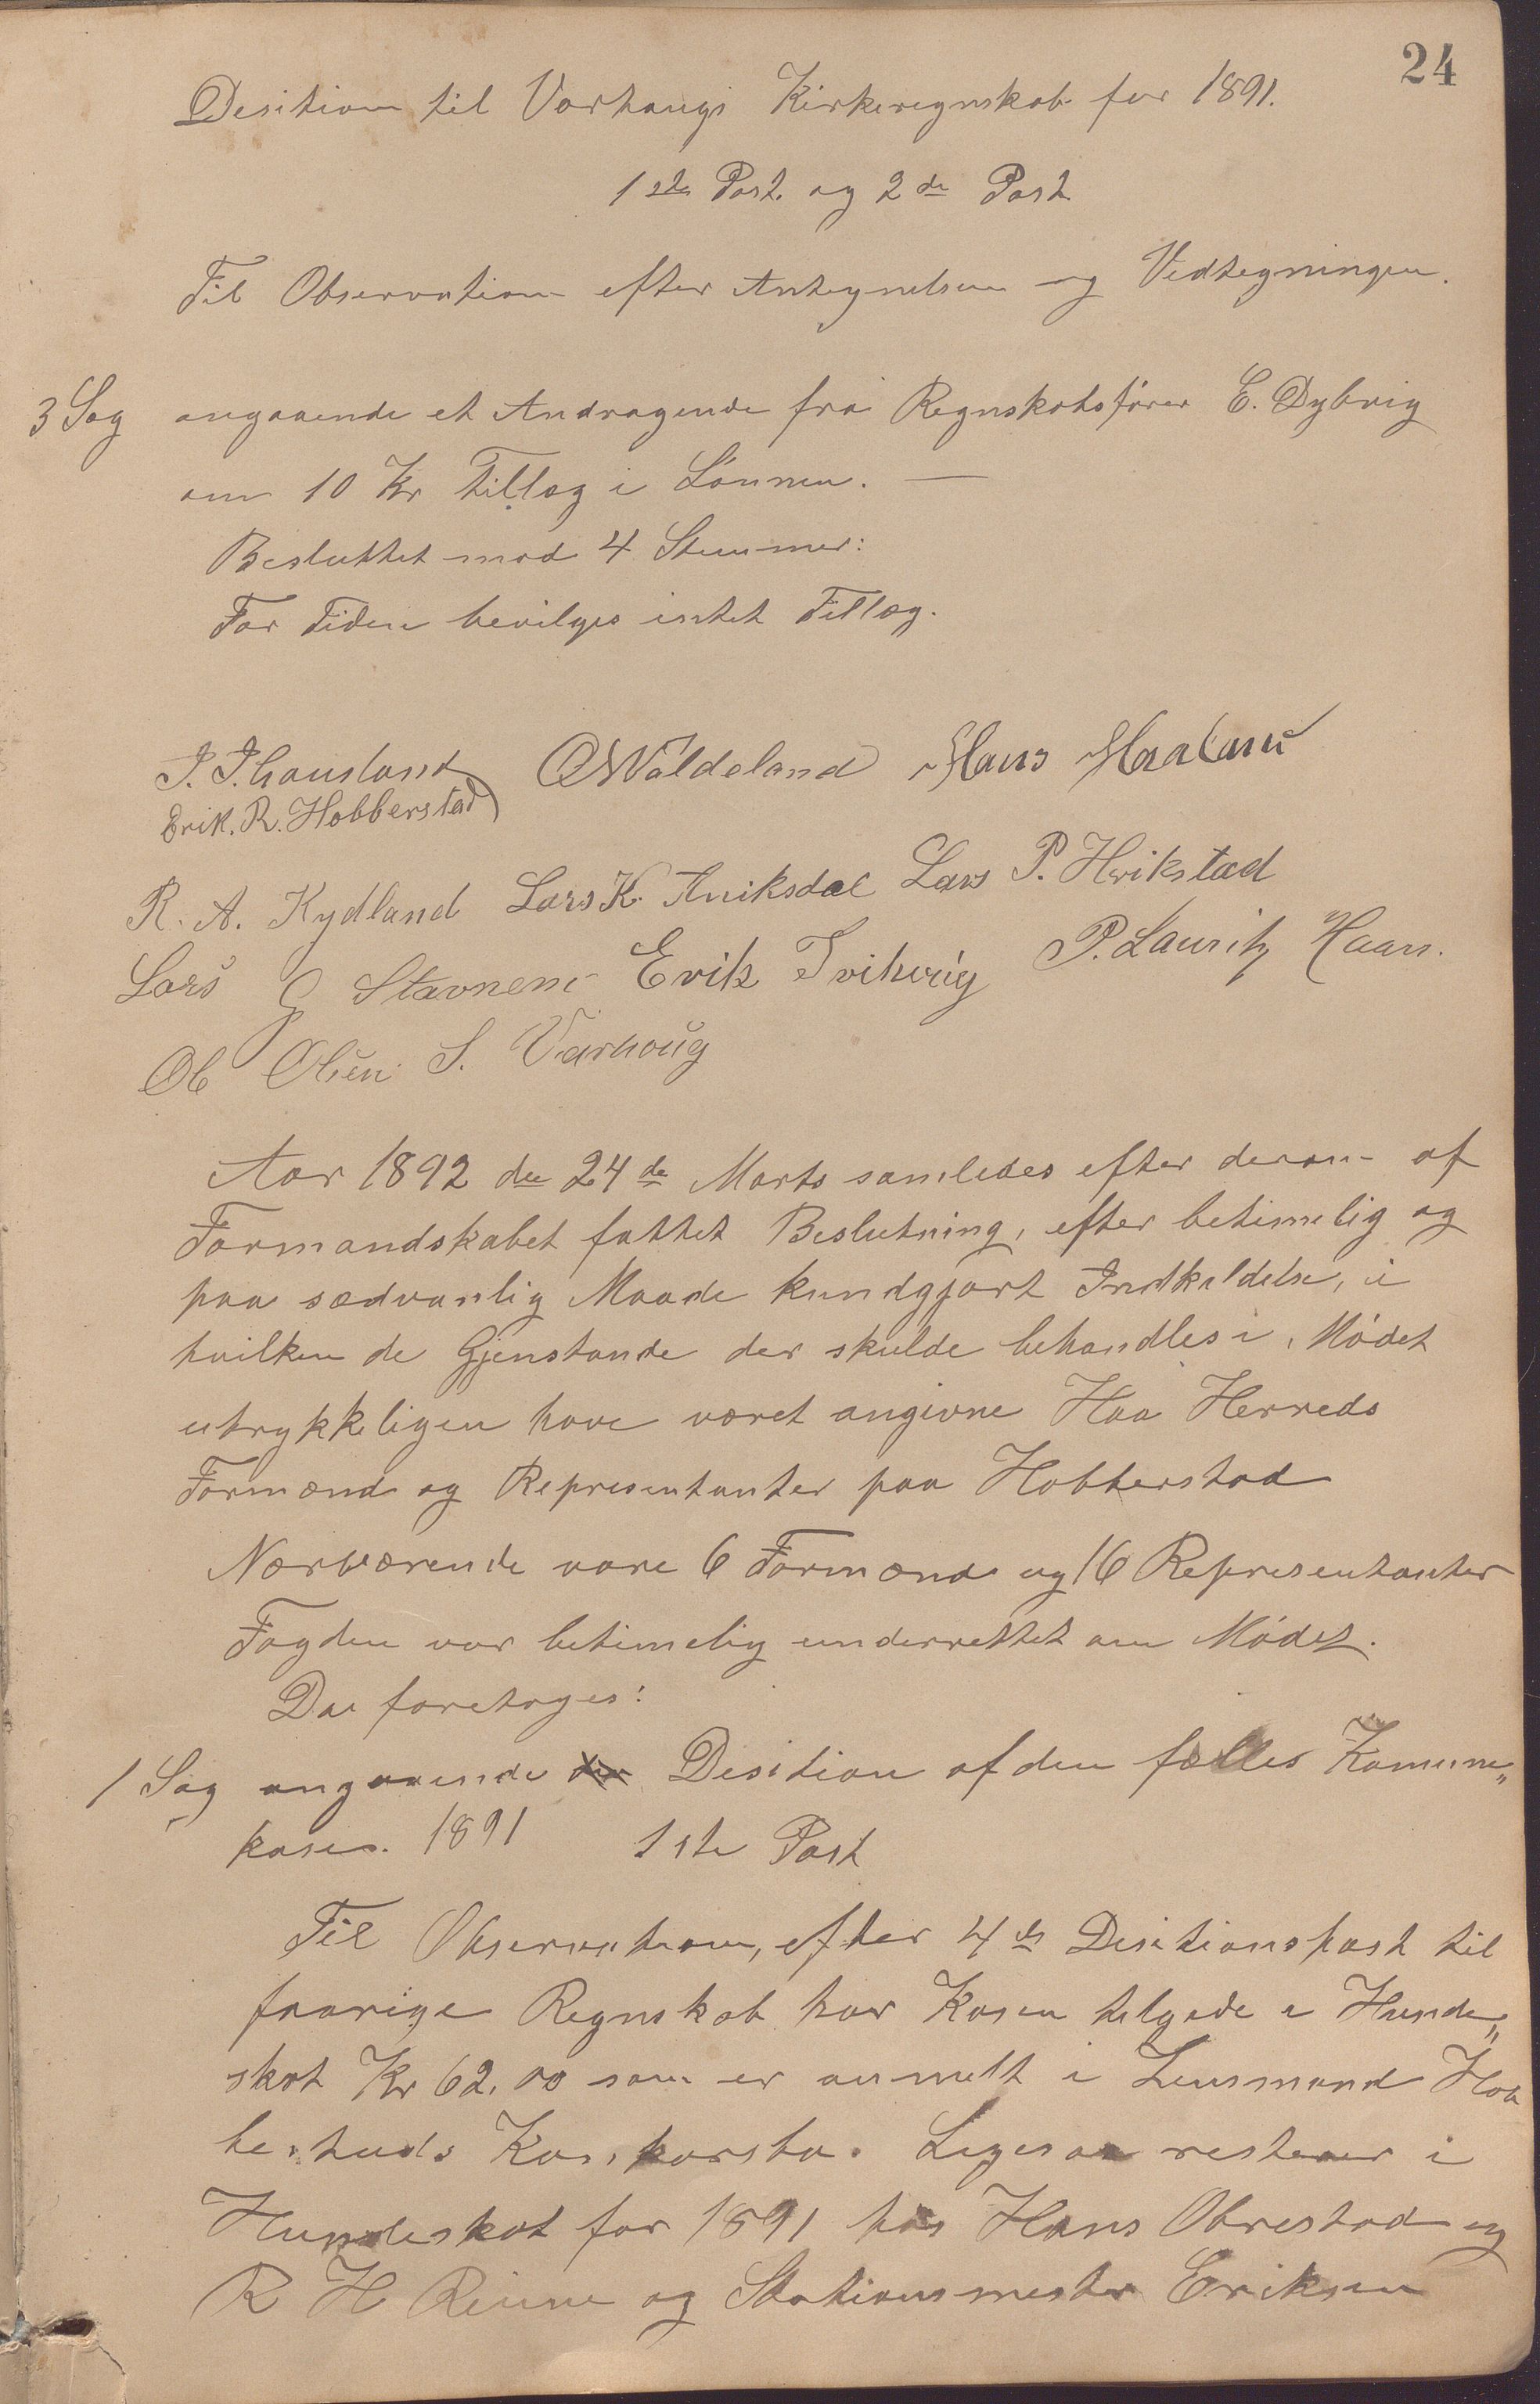 24
Desition til Varhaugs Kirkeregnskab for 1891.
1ste Post. og 2de Post.
Til Observation efter Antegnelsen og Vedtegningen.
3 Sag angaaende et Andragende fra Regnskabsfører E. Dybvig
om 10 Kr Tillæg i Lønnen. —
Besluttet mod 4 Stemmer:
For Tiden bevilges intet Tillæg.
O Waldeland Hans Haaland
Erik. R. Hobberstad
R. A. Kydland Lars K. Aniksdal Lars P. Hrikstad
Lars G Stavnem Erik P. Lauritz Haarr.
Ol Olsen S. Varhoug
Aar 1892 den 24de Marts samledes efter derom af
Formandskabet fattet Beslutning, efter betimelig og
paa sædvanlig Maade kundgjort Indkaldelse, i
hvilken de Gjenstande der skulde behandles i Mødet
utrykkeligen have været angivne Haa Herreds
Formænd og Representanter paa Hobberstad
Nærværende vare 6 Formænd og 16 Representanter
Fogden var betimelig underrettet om Mødet.
Da foretoges:
1 Sag angaaende Desition af den fælles Komune„
kases. 1891 1ste Post
Til Observation, efter 4de Desitionspost til
forrige Regnskab har Kasen tilgode i Hunde„
skat Kr 62,00 som er anmelt i Lensmand Hob
berstads Ligesaa resterer i
Hundeskat for 1891 hos Hans Obrestad og
R H og Stationsmester Eriksen